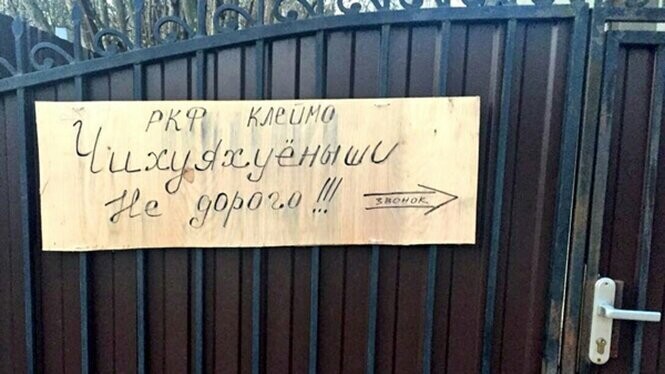 РКФ клеймо
Чихуяхуёныши
Не дорого!!!
звонок